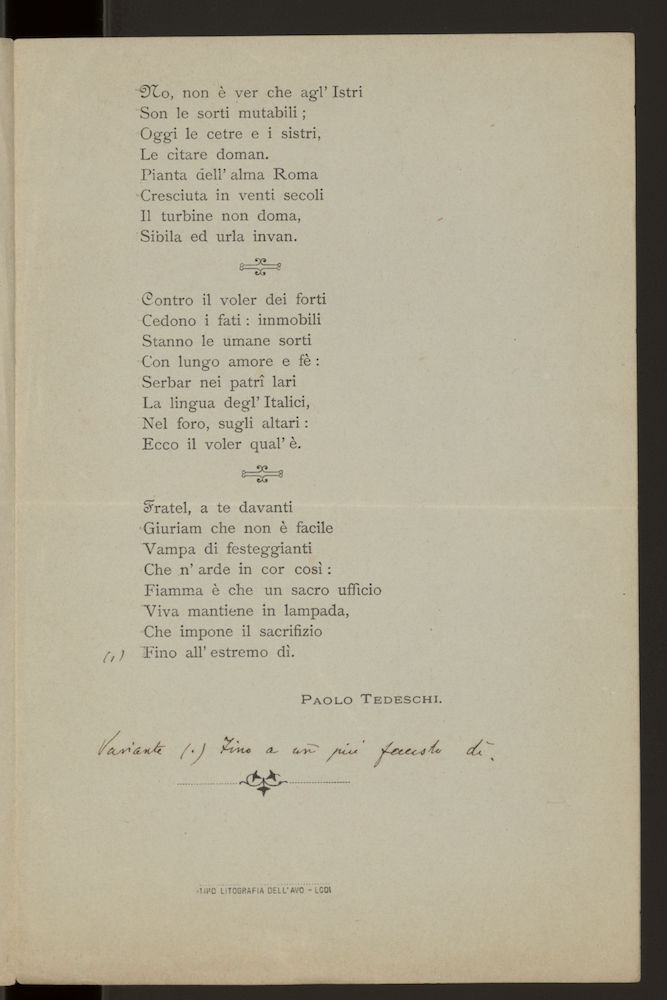 No, non è ver che agl' Istri
Son le sorti mutabili ;
Oggi le cetre e i sistri,
Le citare doman.
Pianta dell' alma Roma
Cresciuta in venti secoli
Il turbine non doma,
Sibila ed urla invan.
Contro il voler dei forti
Cedono i fati : immobili
Stanno le umane sorti
Con lungo amore e fè :
Serbar nei patrî lari
La lingua degl' Italici,
Nel foro, sugli altari :
Ecco il voler qual' è.
Fratel, a te davanti
Giuriam che non è facile
Vampa di festeggianti
Che n' arde in cor così :
Fiamma è che un sacro ufficio
Viva mantiene in lampada,
Che impone il sacrifizio
(1) Fino all' estremo dì.
PAOLO TEDESCHI.
Variante (1) Fino a un più fausto dì.
TIPO LITOGRAFIA DELL' AVO - LODI